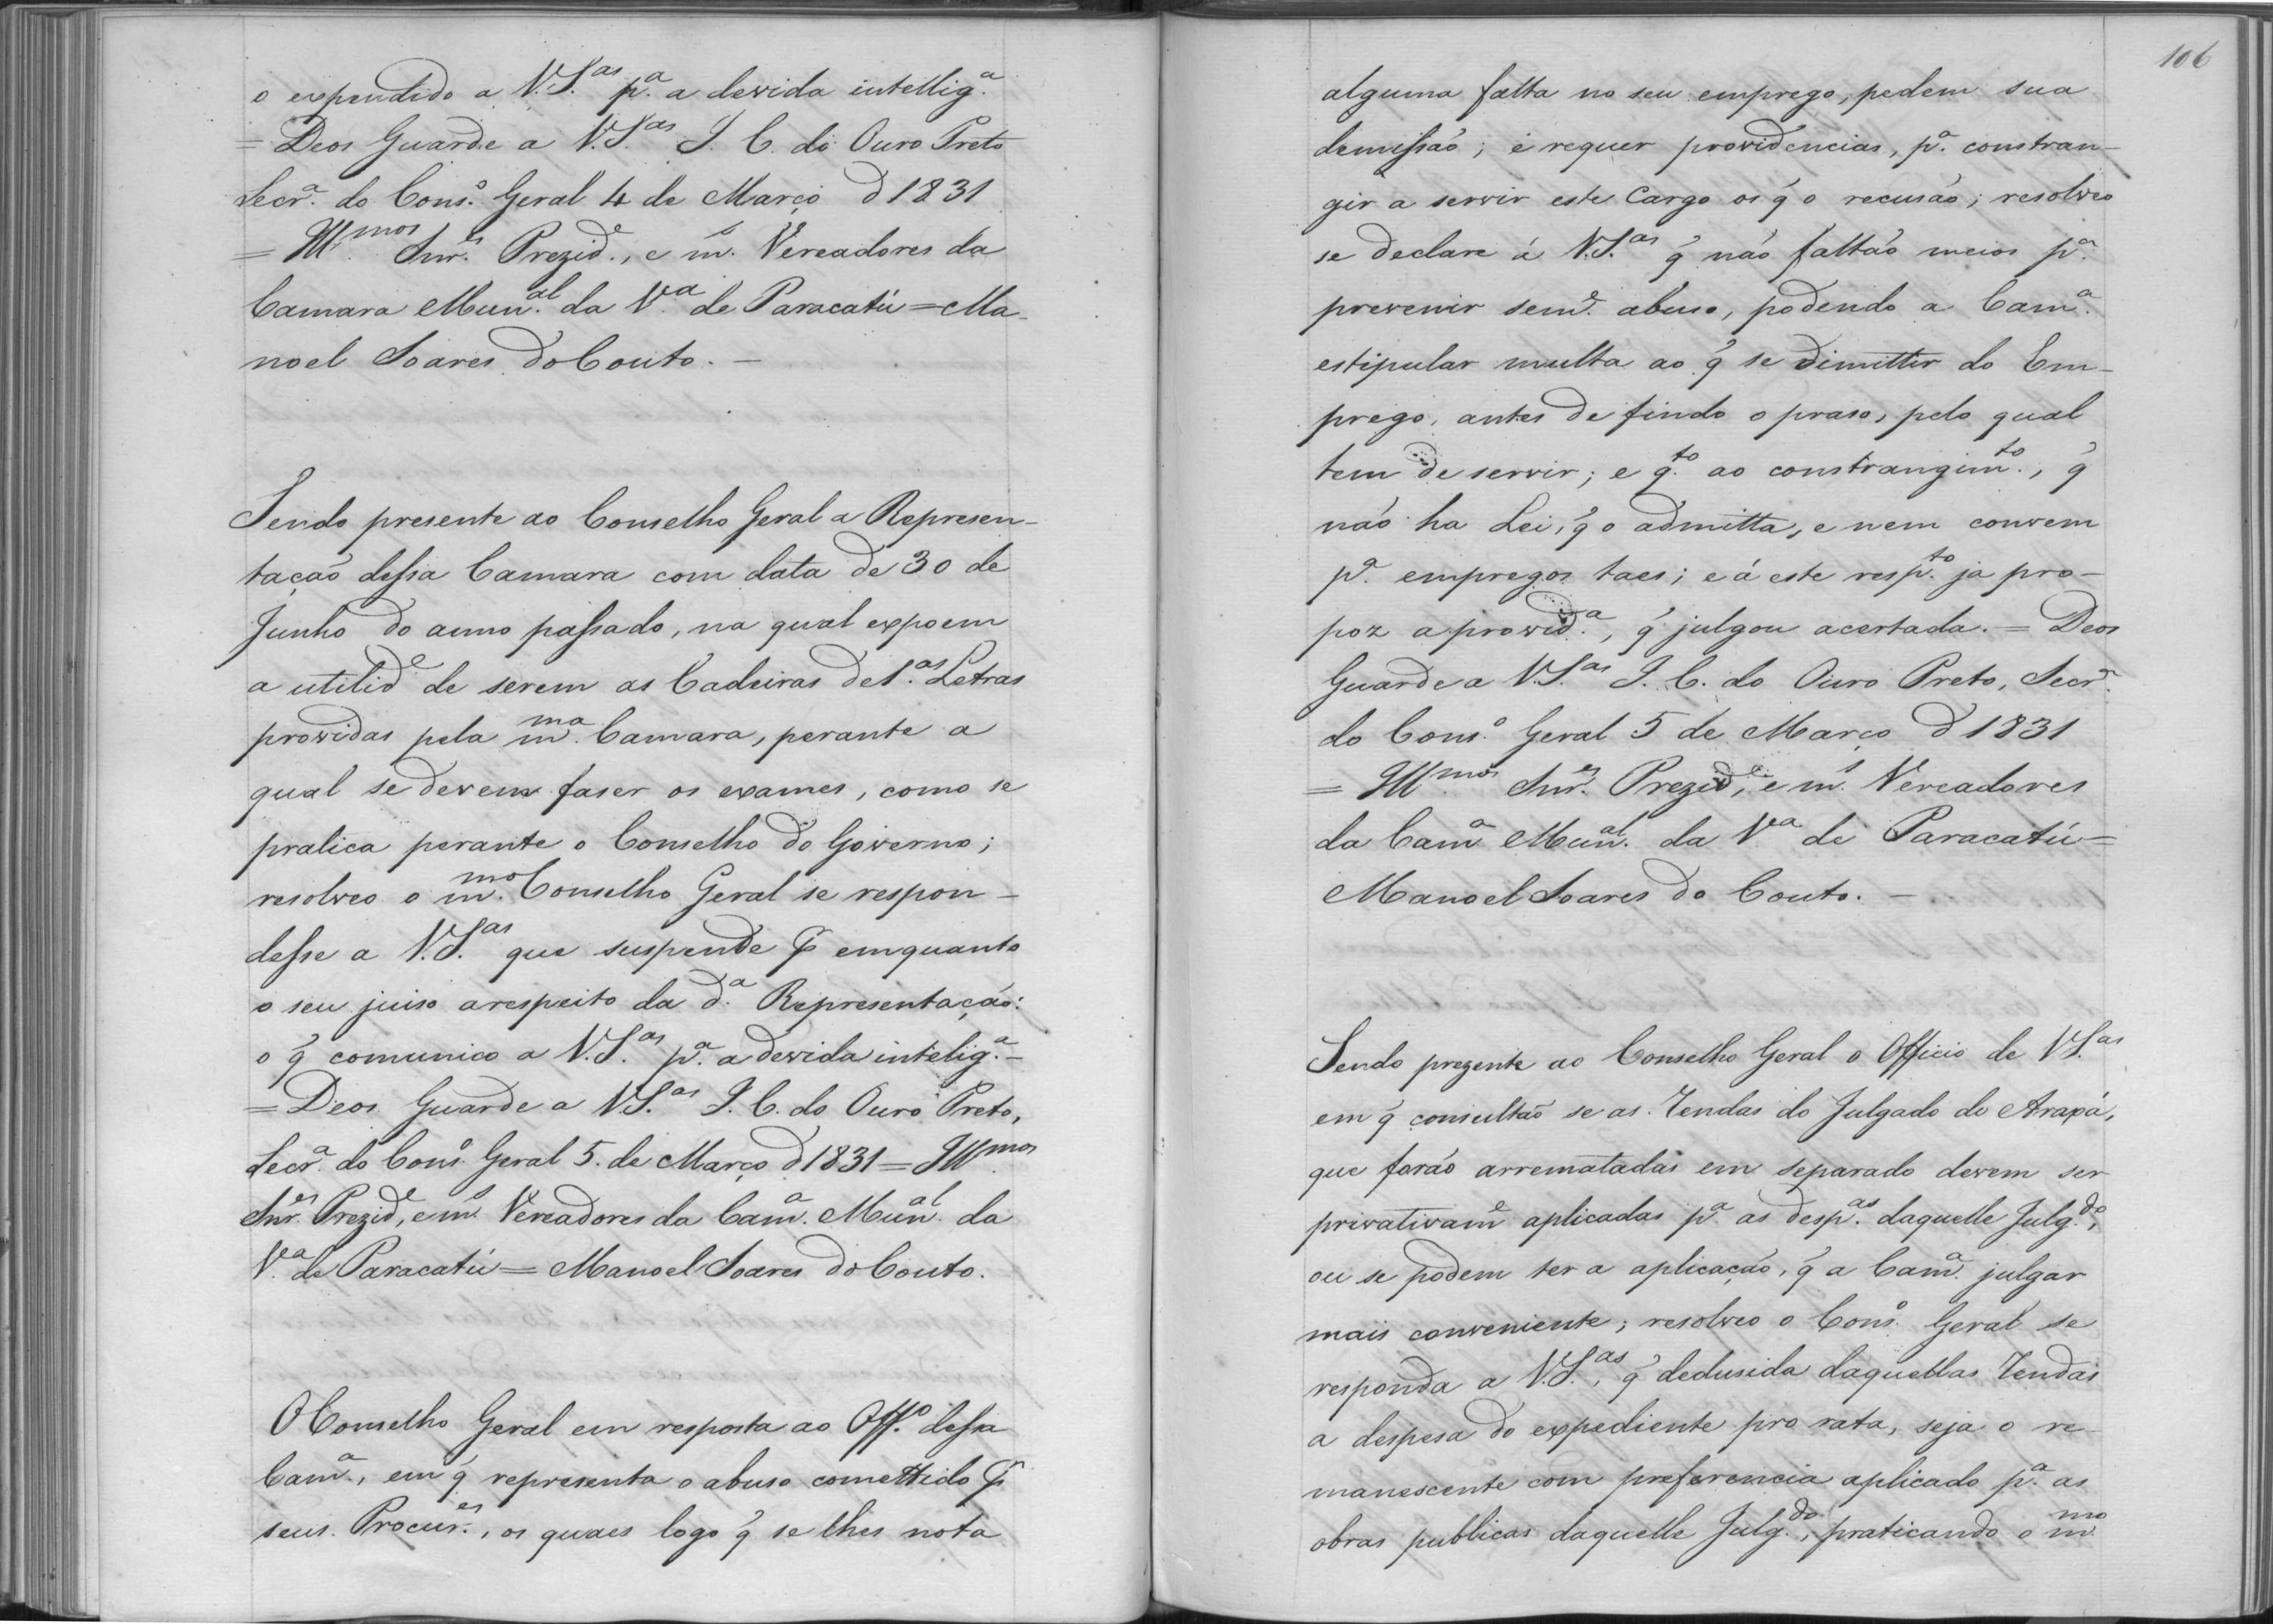 o expendido a V.S.as p.a a devida intellig.a
= Deos Guarde a V.S.as I. C. do Ouro Preto
Secr.a do Cons.o Geral 4 de Março d 1831
= Ill.mos Snr.es Prezid.e, e m.s Vereadores da
Camara Mun.al da V.a de Paracatú = Ma-
noel Soares do Couto. —
Sendo presente ao Conselho Geral a Represen-
tação dessa Camara com data de 30 de
Junho do anno passado, na qual expoem
a utilid.e de serem as Cadeiras de 1.as Letras
providas pela m.ma Camara, perante a
qual se devem faser os exames, como se
pratica perante o Conselho do Governo;
resolveo o m.mo Conselho Geral se respon-
desse a V.S.as que suspende p emquanto
o seu juiso arespeito da d.a Representação:
o q̃ comunico a V.S.as p.a a devida intelig.a —
= Deos Guarde a V.S.as I. C. do Ouro Preto,
Secr.a do Cons.o Geral 5. de Março d 1831 = Ill.mos
Snr.es Prezid.e, e m.s Vereadores da Cam.a Mun.al da
V.a de Paracatú = Manoel Soares do Couto.
O Conselho Geral em resposta ao Off.o dessa
Cam.a, em q̃ representa o abuso comettido p
seus Procur.es, os quaes logo q̃ se lhes nota
106
alguma falta no seu emprego, pedem sua
demissão; e requer providencias, p.a constran-
gir a servir este Cargo os q̃ o recusão; resolveo
se declare á V.S.as q̃ não faltão meios p.a
prevenir sem.e abuso, podendo a Cam.a
estipular multa ao q̃ se dimittir do Em-
prego, antes de findo o praso, pelo qual
tem de servir; e q.to ao constrangim.to, q̃
não ha Lei, q̃ o admitta, e nem convem
p.a empregos taes; e á este resp.to ja pro-
poz a provid.a, q̃ julgou acertada. = Deos
Guarde a V.S.as I. C. do Ouro Preto, Secr.a
do Cons.o Geral 5 de Março d 1831
= Ill.mos Snr.es Prezid.e, e m.s Vereadores
da Cam.a Mun.al da V.a de Paracatú =
Manoel Soares do Couto. —
Sendo prezente ao Conselho Geral o Officio de VS.as
em q̃ consultão se as Rendas do Julgado do Araxá,
que forão arrematadas em separado devem ser
privativam.e aplicadas p.a as desp.as daquelle Julg.do,
ou se podem ter a aplicação, q̃ a Cam.a julgar
mais conveniente; resolveo o Cons.o Geral se
responda a V.S.as, q̃ dedusida daquellas Rendas
a despesa do expediente pro rata, seja o re-
manescente com preferencia aplicado p.a as
obras publicas daquelle Julg.do, praticando o m.mo